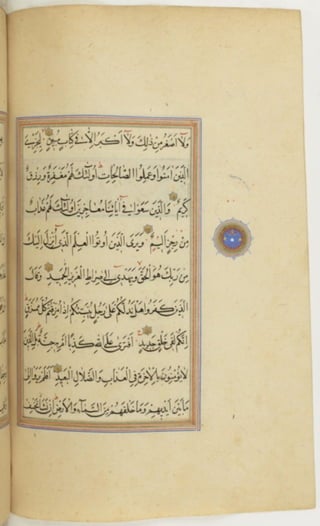 وَلَا أَصْغَرُ مِنْ ذَٰلِكَ وَلَا أَكْبَرُ إِلَّا فِي كِتَابٍ مُبِينٍ لِيَجْزِيَ
الَّذِينَ آمَنُوا وَعَمِلُوا الصَّالِحَاتِ أُولَٰئِكَ لَهُمْ مَغْفِرَةٌ وَرِزْقٌ
كَرِيمٌ وَالَّذِينَ سَعَوْا فِي آيَاتِنَا مُعَاجِزِينَ أُولَٰئِكَ لَهُمْ عَذَابٌ
مِنْ رِجْزٍ أَلِيمٌ وَيَرَى الَّذِينَ أُوتُوا الْعِلْمَ الَّذِي أُنْزِلَ إِلَيْكَ
مِنْ رَبِّكَ هُوَ الْحَقَّ وَيَهْدِي إِلَىٰ صِرَاطِ الْعَزِيزِ الْحَمِيدِ وَقَالَ
الَّذِينَ كَفَرُوا هَلْ نَدُلُّكُمْ عَلَىٰ رَجُلٍ يُنَبِّئُكُمْ إِذَا مُزِّقْتُمْ كُلَّ مُمَزَّقٍ
إِنَّكُمْ لَفِي خَلْقٍ جَدِيدٍ أَفْتَرَىٰ عَلَى اللَّهِ كَذِبًا أَمْ بِهِ جِنَّةٌ بَلِ الَّذِينَ
لَا يُؤْمِنُونَ بِالْآخِرَةِ فِي الْعَذَابِ وَالضَّلَالِ الْبَعِيدِ أَفَلَمْ يَرَوْا إِلَىٰ
مَا بَيْنَ أَيْدِيهِمْ وَمَا خَلْفَهُمْ مِنَ السَّمَاءِ وَالْأَرْضِ إِنْ نَشَأْ نَخْسِفْ